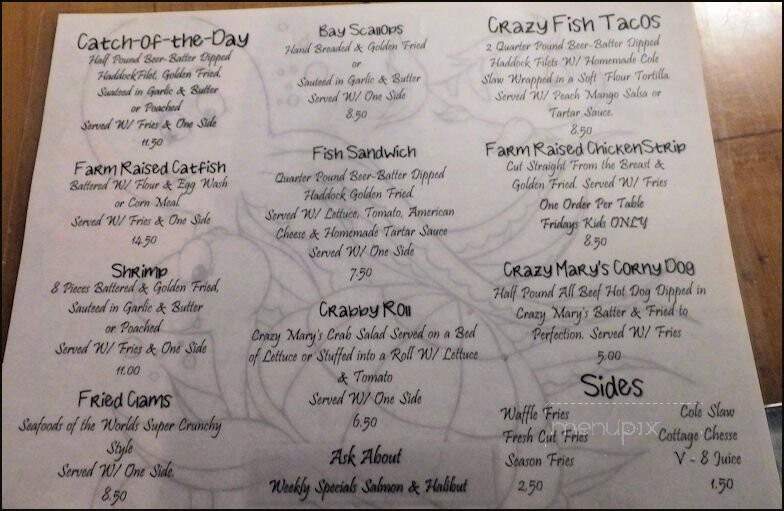 Catch-of-the-Day
Half Pound Beer-Batter Dipped
HaddockFilet, Golden Fried,
Suateed in Garlic & Butter
or Poached
Served W/ Fries & One Side
11.50
Farm Raised Catfish
Battered W/ Flour & Egg Wash
or Corn Meal
Served W/ Fries & One Side
14.50
Shrimp
8 Pieces Battered & Golden Fried,
Sauteed in Garlic & Butter
or Poached
Served W/ Fries & One Side
11.00
Fried Clams
Seafoods of the Worlds Super Crunchy
Style
Served W/ One Side.
8.50
Bay Scallops
Hand Breaded & Golden Fried
or
Sauteed in Garlic & Butter
Served W/ One Side
8.50
Fish Sandwich
Quarter Pound Beer-Batter Dipped
Haddock Golden Fried.
Served W/ Lettuce, Tomato, American
Cheese & Homemade Tartar Sauce
Served W/ One Side
7.50
Crabby Roll
Crazy Mary's Crab Salad Served on a Bed
of Lettuce or Stuffed into a Roll W/ Lettuce
& Tomato
Served W/ One Side
6.50
Ask About
Weekly Specials Salmon & Halibut
Crazy Fish Tacos
2 Quarter Pound Beer-Batter Dipped
Haddock Filets W/ Homemade Cole
Slaw Wrapped in a Soft Flour Tortilla.
Served W/ Peach Mango Salsa or
Tartar Sauce.
8.50
Farm Raised ChickenStrip
Cut Straight From the Breast &
Golden Fried. Served W/ Fries
One Order Per Table
Fridays Kids ONLY
8.50
Crazy Mary's Corny Dog
Half Pound All Beef Hot Dog Dipped in
Crazy Mary's Batter & Fried to
Perfection. Served W/ Fries
5.00
Sides
Waffle Fries
Fresh Cut Fries
Season Fries
2.50
Cole Slaw
Cottage Chesse
V - 8 Juice
1.50
menupix